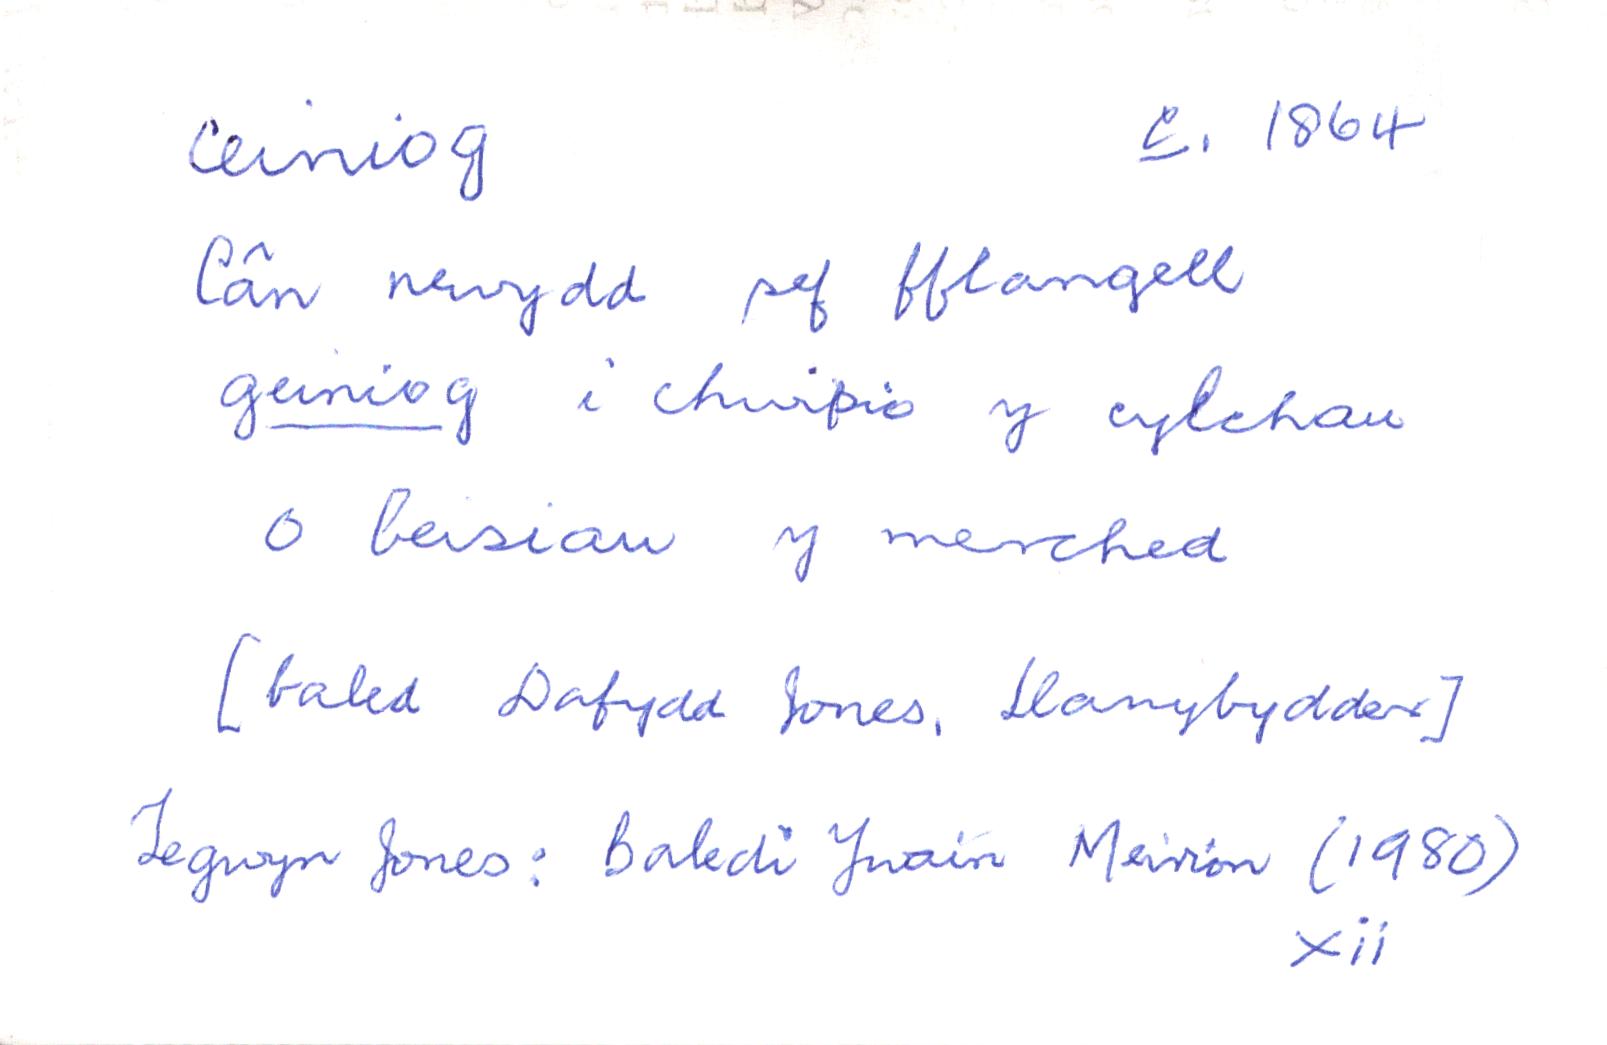 ceiniog c. 1864
Cân newydd sef fflangell
geiniog i chwipio y cylchau
o beisiau y merched
[baled Dafydd Jones, Llanybydder]
Tegwyn Jones: Baledi Ywain Meirion (1980)
xii